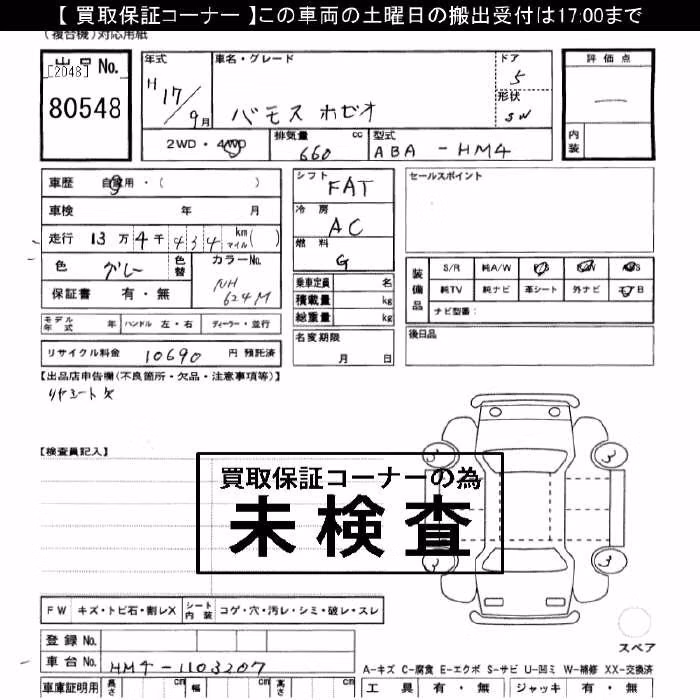 【 買取保証コーナー 】この車両の土曜日の搬出受付は17:00まで
(複合機)対応用紙
出品 No.
[2048]
80548
年式 H 17/9月
車名・グレード バモス ホビオ
ドア 5
形状 SW
評価点 —
内装
2WD・4WD
排気量 660 cc
型式 ABA - HM4
車歴 自家用・( )
車検 年 月
走行 13万4千434 km マイル( )
色 グレー 色替
カラーNo. NH 624M
保証書 有・無
シフト FAT
冷房 AC
燃料 G
乗車定員 名
積載量 kg
総重量 kg
セールスポイント
装備品 S/R 純A/W P/S P/W A/B
純TV 純ナビ 革シート 外ナビ
ナビ型番:
モデル年式 年 ハンドル 左・右 ディーラー・並行
名変期限 月 日
後日品
リサイクル料金 10690 円 預託済
【出品店申告欄(不良箇所・欠品・注意事項等)】
リヤシート欠
【検査員記入】
買取保証コーナーの為
未検査
3 3
3 3
FW キズ・トビ石・割レX シート内装 コゲ・穴・汚レ・シミ・破レ・スレ
スペア
登録 No.
車台 No. HM4-1103207
A-キズ C-腐食 E-エクボ S-サビ U-凹ミ W-補修 XX-交換済
車庫証明用 長さ cm 幅 cm 高さ cm
工具 有・無 ジャッキ 有・無